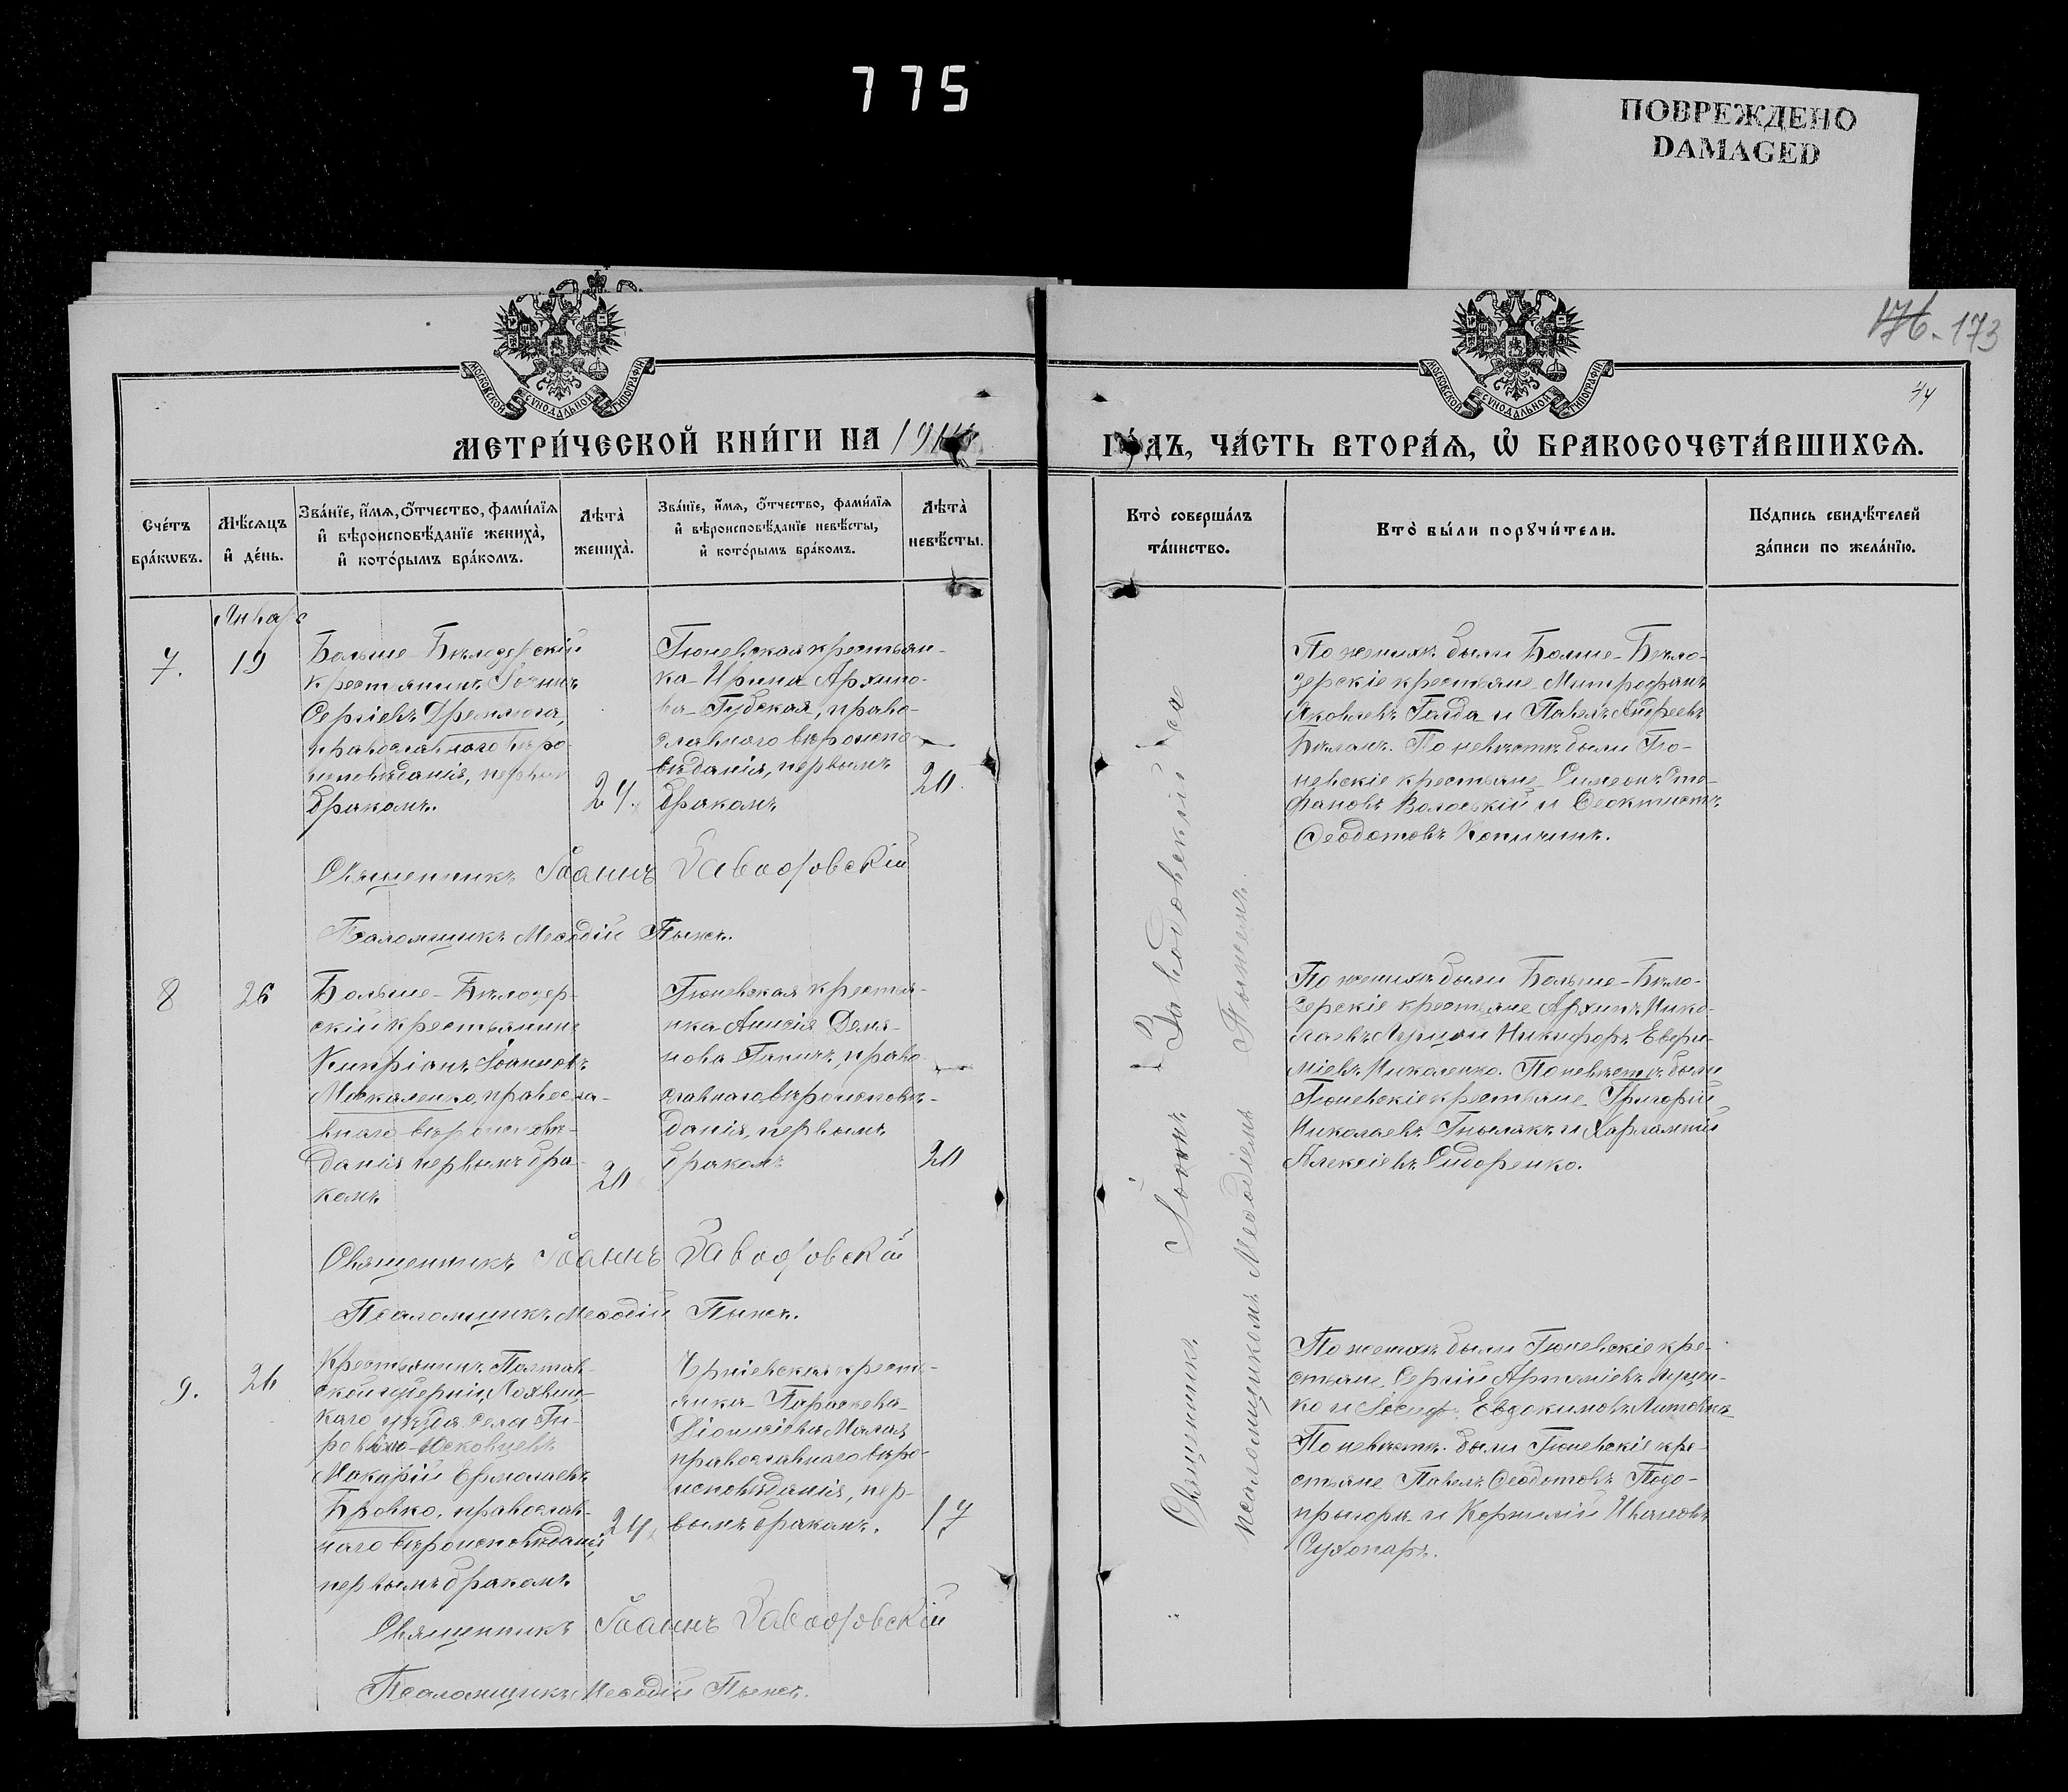 775
ПОВРЕЖДЕНО
DAMAGED
176. 173
44
МОСКОВСКОЙ СУНОДАЛЬНОЙ ТИПОГРАФІИ
МОСКОВСКОЙ СУНОДАЛЬНОЙ ТИПОГРАФІИ
МЕТРИ́ЧЕСКОЙ КНИ́ГИ НА 191
ГО́ДЪ, ЧА́СТЬ ВТОРА́Ѧ, Ѡ҆ БРАКОСОЧЕТА́ВШИХСѦ.
Сче́тъ
бра́кѡвъ.
Мѣ́сѧцъ
и҆ де́нь.
Зва́нїе, и҆́мѧ, ѻ҆́тчество, фами́лїѧ
и҆ вѣроисповѣ́данїе жениха̀,
и҆ кото́рымъ бра́комъ.
Лѣта̀
жениха̀.
Зва́нїе, и҆́мѧ, ѻ҆́тчество, фами́лїѧ
и҆ вѣроисповѣ́данїе невѣ́сты,
и҆ кото́рымъ бра́комъ.
Лѣта̀
невѣ́сты.
Кто̀ соверша́лъ
та́инство.
Кто̀ бы́ли порꙋчи́тели.
По́дпись свидѣ́телей
за́писи по жела́нїю.
Январь
7.
19
Больше-Бѣлозерскій
крестьянинъ Іоаннъ
Сергіевъ Дремлюга,
православнаго вѣро-
исповѣданія, первымъ
бракомъ.
24.
Гюневская крестьян-
ка Ирина Архипо-
ва Губская, право-
славнаго вѣроиспо-
вѣданія, первымъ
бракомъ
20.
По женихѣ были Больше-Бѣло-
зерскіе крестьяне Митрофанъ
Яковлевъ Галда и Павелъ Андреевъ
Бѣланъ. По невѣстѣ были Гю-
невскіе крестьяне Симеонъ Сте-
фановъ Волоскій и Феоктистъ
Феодотовъ Копичинъ.
Священникъ Іоаннъ Заводовскій
Псаломщикъ Меѳодій Пынсъ.
8
26
Больше-Бѣлозер-
скій крестьянинъ
Кипріанъ Іоанновъ
Москаленко, правосла-
внаго вѣроисповѣ-
данія первымъ бра-
комъ
20
Гюневская крестья-
нка Анисія Демя-
нова Гнничъ, право-
славнаго вѣроисповѣ-
данія, первымъ
бракомъ
20
По женихѣ были Больше-Бѣло-
зерскіе крестьяне Архипъ Нико-
лаевъ и Никифоръ Евфи-
міевъ Николенко. По невѣстѣ были
Гюневскіе крестьяне Григорій
Николаевъ Гнылякъ и Харлампій
Алексіевъ Сидоренко.
Священникъ Іоаннъ Заводовскій
Псаломщикъ Меѳодій Пынсъ.
9.
26
Крестьянинъ Полтав-
ской губерніи, Лохвиц-
каго уѣзда села
Исковцевъ
Макарій Ермолаевъ
Бровко, православ-
наго вѣроисповѣданія,
первымъ бракомъ.
24.
крестьянка
Параскева
Діонисіева Малая
православнаго вѣро-
исповѣданія, пер-
вымъ бракомъ.
17
По женихѣ были Гюневскіе кре-
стьяне Сергій Артеміевъ Луцен-
ко и Іосифъ Евдокимовъ
По невѣстѣ были Гюневскіе кре-
стьяне Павелъ Феодотовъ Подо-
пригора и Корнилій Ивановъ
Сухопаръ.
Священникъ Іоаннъ Заводовскій
Псаломщикъ Меѳодій Пынсъ.
Священникъ Іоаннъ Заводовскій со
псаломщикомъ Меѳодіемъ Пынсемъ.